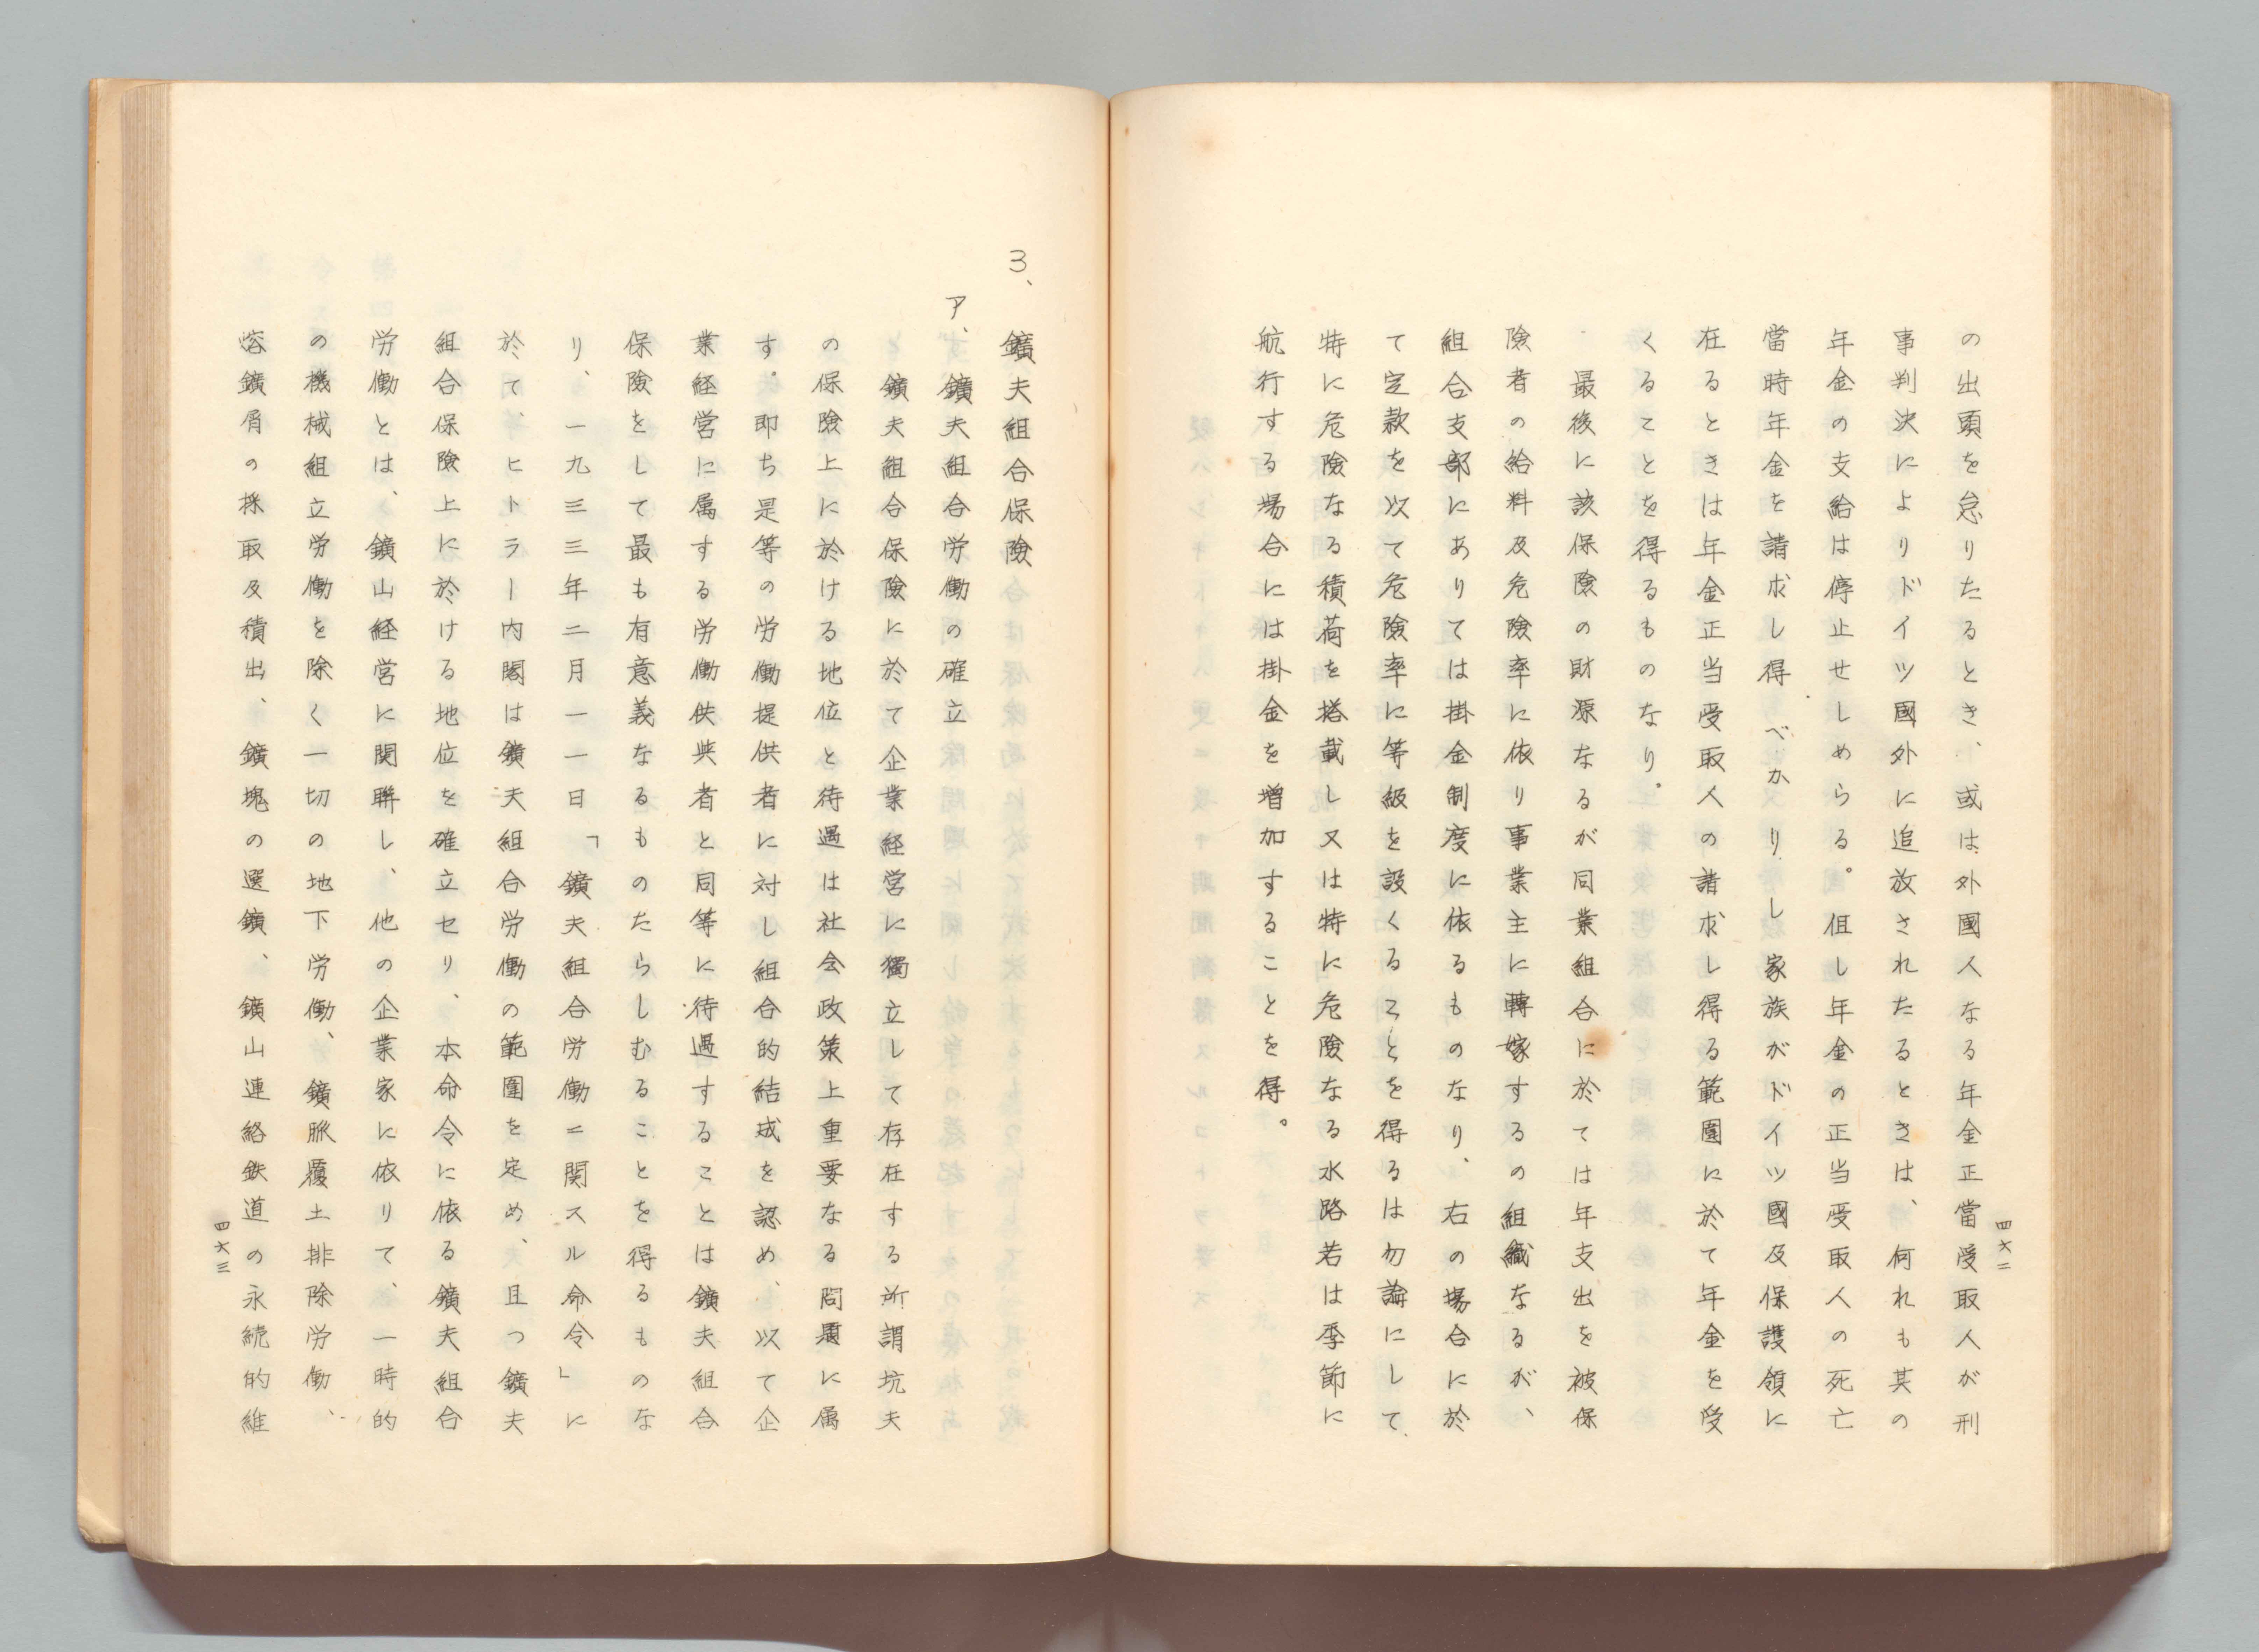 の出頭を怠りたるとき、或は外國人なる年金正當受取人が刑
事判決によりドイツ國外に追放されたるときは、何れも其の
年金の支給は停止せしめらる。但し年金の正当受取人の死亡
當時年金を請求し得べかりし家族がドイツ國及保護領に
在るときは年金正当受取人の請求し得る範圍に於て年金を受
くることを得るものなり。
最後に該保險の財源なるが同業組合に於ては年支出を被保
險者の給料及危險率に依り事業主に轉嫁するの組織なるが、
組合支部にありては掛金制度に依るものなり、右の場合に於
て定款を以て危險率に等級を設くることを得るは勿論にして
特に危險なる積荷を搭載し又は特に危險なる水路若は季節に
航行する場合には掛金を増加することを得。
四六二
3、鑛夫組合保險
ア、鑛夫組合労働の確立
鑛夫組合保險に於て企業経営に獨立して存在する所謂坑夫
の保險上に於ける地位と待遇は社会政策上重要なる問題に属
す。即ち是等の労働提供者に対し組合的結成を認め、以て企
業経営に属する労働供與者と同等に待遇することは鑛夫組合
保險をして最も有意義なるものたらしむることを得るものな
り、一九三三年二月一一日「鑛夫組合労働ニ関スル命令」に
於て、ヒトラー内閣は鑛夫組合労働の範圍を定め、且つ鑛夫
組合保險上に於ける地位を確立セり、本命令に依る鑛夫組合
労働とは、鑛山経営に関聯し、他の企業家に依りて、一時的
の機械組立労働を除く一切の地下労働、鑛脈覆土排除労働、
熔鑛屑の採取及積出、鑛塊の選鑛、鑛山連絡鉄道の永続的維
四六三